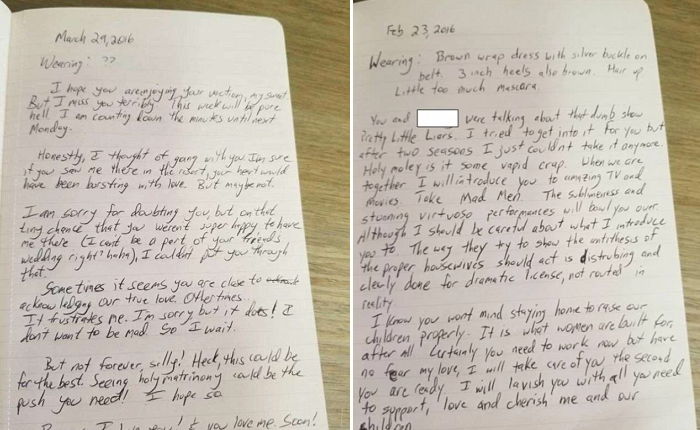 March 29, 2016
Wearing: ??
I hope you are enjoying your vaction, my sweet
But I miss you terribly. This week will be pure
hell. I am counting down the minutes until next
Monday.
Honestly, I thought of going with you. I'm sure
if you saw me there in the resort, your heart would
have been bursting with love. But maybe not.
I am sorry for doubting you, but on that
tiny chance that you werent super happy to have
me there (I cant be a part of your friends
wedding right? haha), I couldnt put you through
that.
Sometimes it seems you are close to
acknowledging our true love. Other times...
It frustrates me. I'm sorry but it does! I
dont want to be mad. So I wait.
But not forever, silly! Heck, this could be
for the best. Seeing holy matrinony could be the
push you need! I hope so.
you love me. Soon!
Feb 23, 2016
Wearing: Brown wrap dress with silver buckle on
belt. 3 inch heels also brown. Hair up
Little too much mascara.
You and were talking about that dumb show
Pretty Little Liars. I tried to get into it for you but
after two seasons I just couldnt take it anymore.
Holy moley is it some vapid crap. When we are
together I will introduce you to amazing TV and
movies. Take Mad Men. The sublimeness and
stunning virtuoso performances will bowl you over.
Although I should be careful about what I introduce
you to. The way they try to show the antithesis of
the proper housewives should act is distrubing and
clearly done for dramatic license, not routed in
reality.
I know you wont mind staying home to raise our
children properly. It is what women are built for,
after all. Certainly you need to work now but have
no fear my love, I will take care of you the second
you are ready. I will lavish you with all you need
to support, love and cherish me and our
children